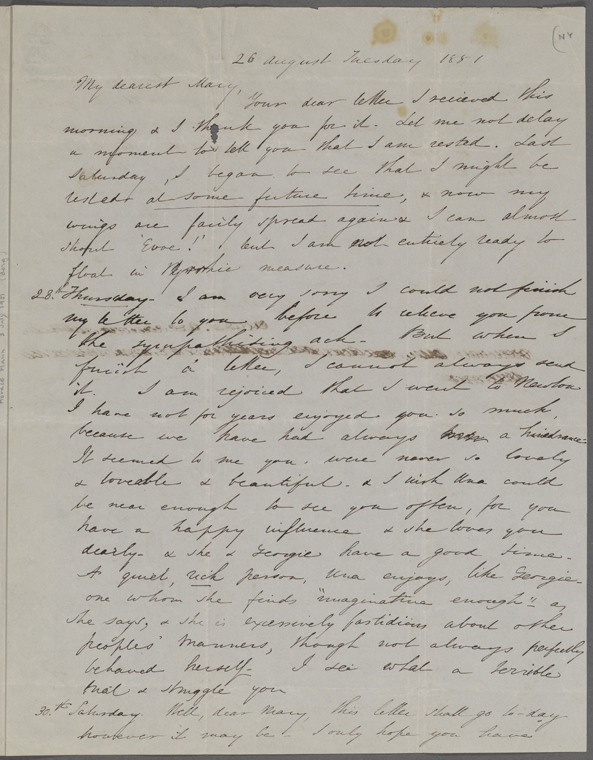 NY
26 August Tuesday 1851
My dearest Mary,
Your dear letter I recieved this
morning, & I thank you for it. Let me not delay
a moment to tell you that I am rested. Last
Saturday, I began to see that I might be
rested at some future time, & now my
wings are fairly spread again & I can almost
shout "Evoe!" but I am not entirely ready to
float in measure.
28.th Thursday. I am very sorry I could not finish
my letter to you, before to relieve you from
the sympathising ach. But when I
finish a letter, I cannot always send
it. I am rejoiced that I went to Newton
I have not for years enjoyed you so much,
because we have had always a hindrance.
It seemed to me you were never so lovely
& loveable & beautiful. & I wish Una could
be near enough to see you often, for you
have a happy influence & she loves you
dearly- & she & Georgie have a good time-
A quiet, rich person, Una enjoys, like Georgie-
one whom she finds "imaginative enough" as
she says, & she is excessively fastidious about other
peoples' manners, though not always perfectly
behaved herself- I see what a terrible
trial & struggle you
30.th Saturday. Well, dear Mary, this letter shall go to-day
however it may be. I only hope you have